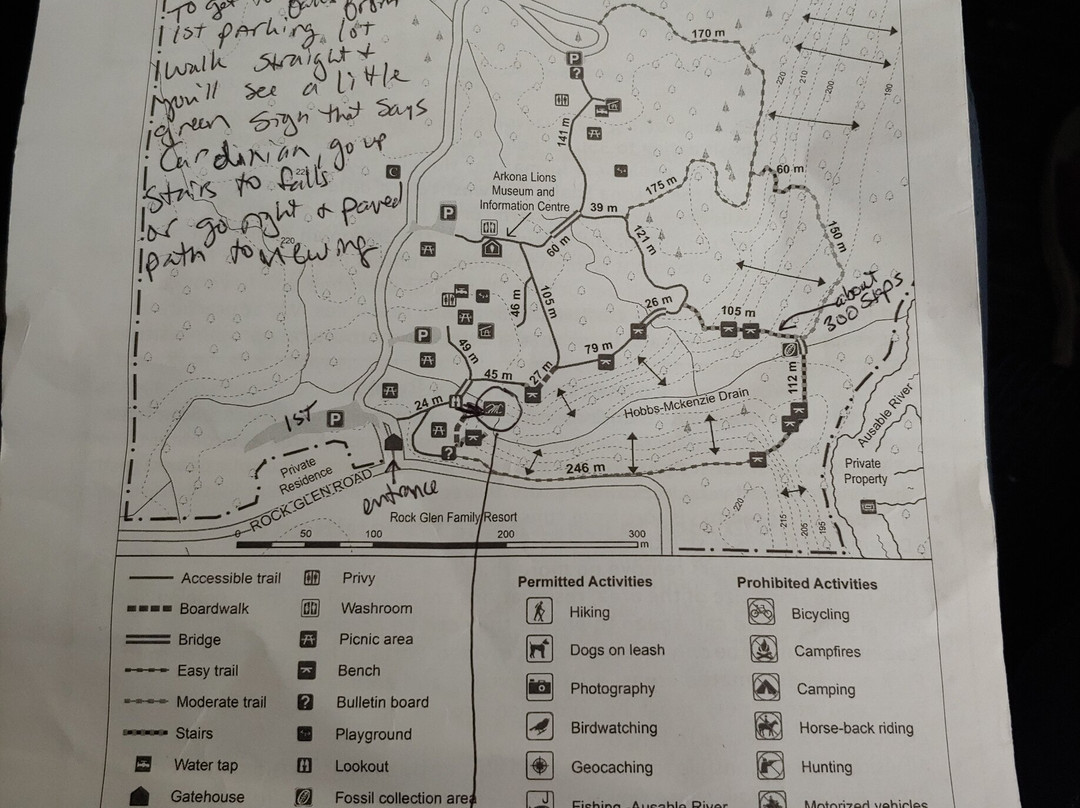 To get to falls from
1st parking lot
walk straight &
you'll see a little
green sign that says
Cardinian, go up
stairs to falls
or go right & paved
path to viewing
170 m
220
210
200
190
P
?
141 m
175 m
60 m
Arkona Lions
Museum and
Information Centre
39 m
60 m
121 m
150 m
P
220
220
about
300 steps
105 m
46 m
26 m
105 m
P
49 m
79 m
45 m
27 m
112 m
24 m
Hobbs-Mckenzie Drain
Ausable River
1ST
P
?
246 m
Private
Residence
Private
Property
ROCK GLEN ROAD
entrance
220
215
205
195
Rock Glen Family Resort
0
50
100
200
300
m
Accessible trail
Boardwalk
Bridge
Easy trail
Moderate trail
Stairs
Water tap
Gatehouse
Privy
Washroom
Picnic area
Bench
? Bulletin board
Playground
Lookout
Fossil collection area
Permitted Activities
Hiking
Dogs on leash
Photography
Birdwatching
Geocaching
Fishing, Ausable River
Prohibited Activities
Bicycling
Campfires
Camping
Horse-back riding
Hunting
Motorized vehicles